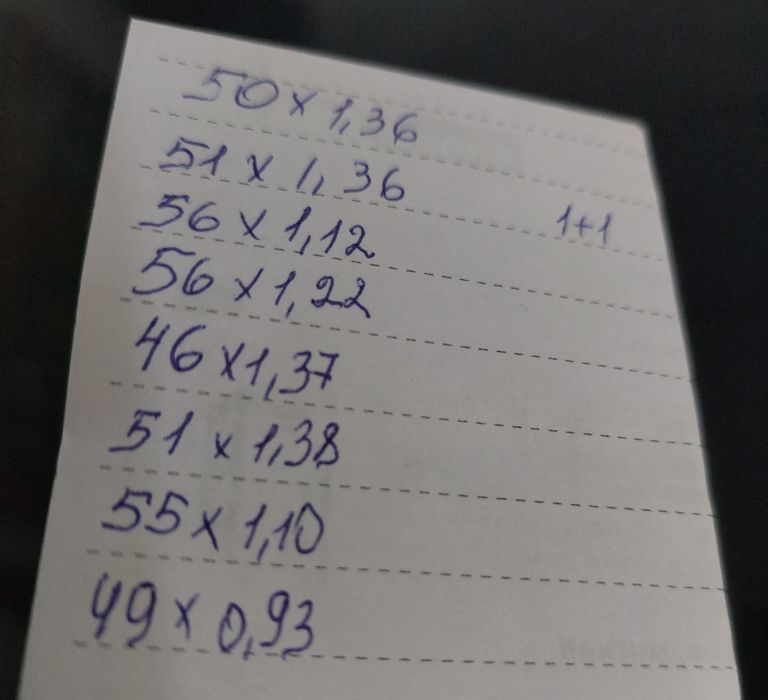 50 x 1,36
51 x 1,36
56 x 1,12
1+1
56 x 1,22
46 x 1,37
51 x 1,38
55 x 1,10
49 x 0,93